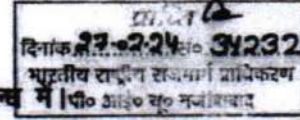 प्राप्ति
दिनांक 27-02-24 सं० 34232
भारतीय राष्ट्रीय राजमार्ग प्राधिकरण
में। पी० आई० यू० नजीबाबाद